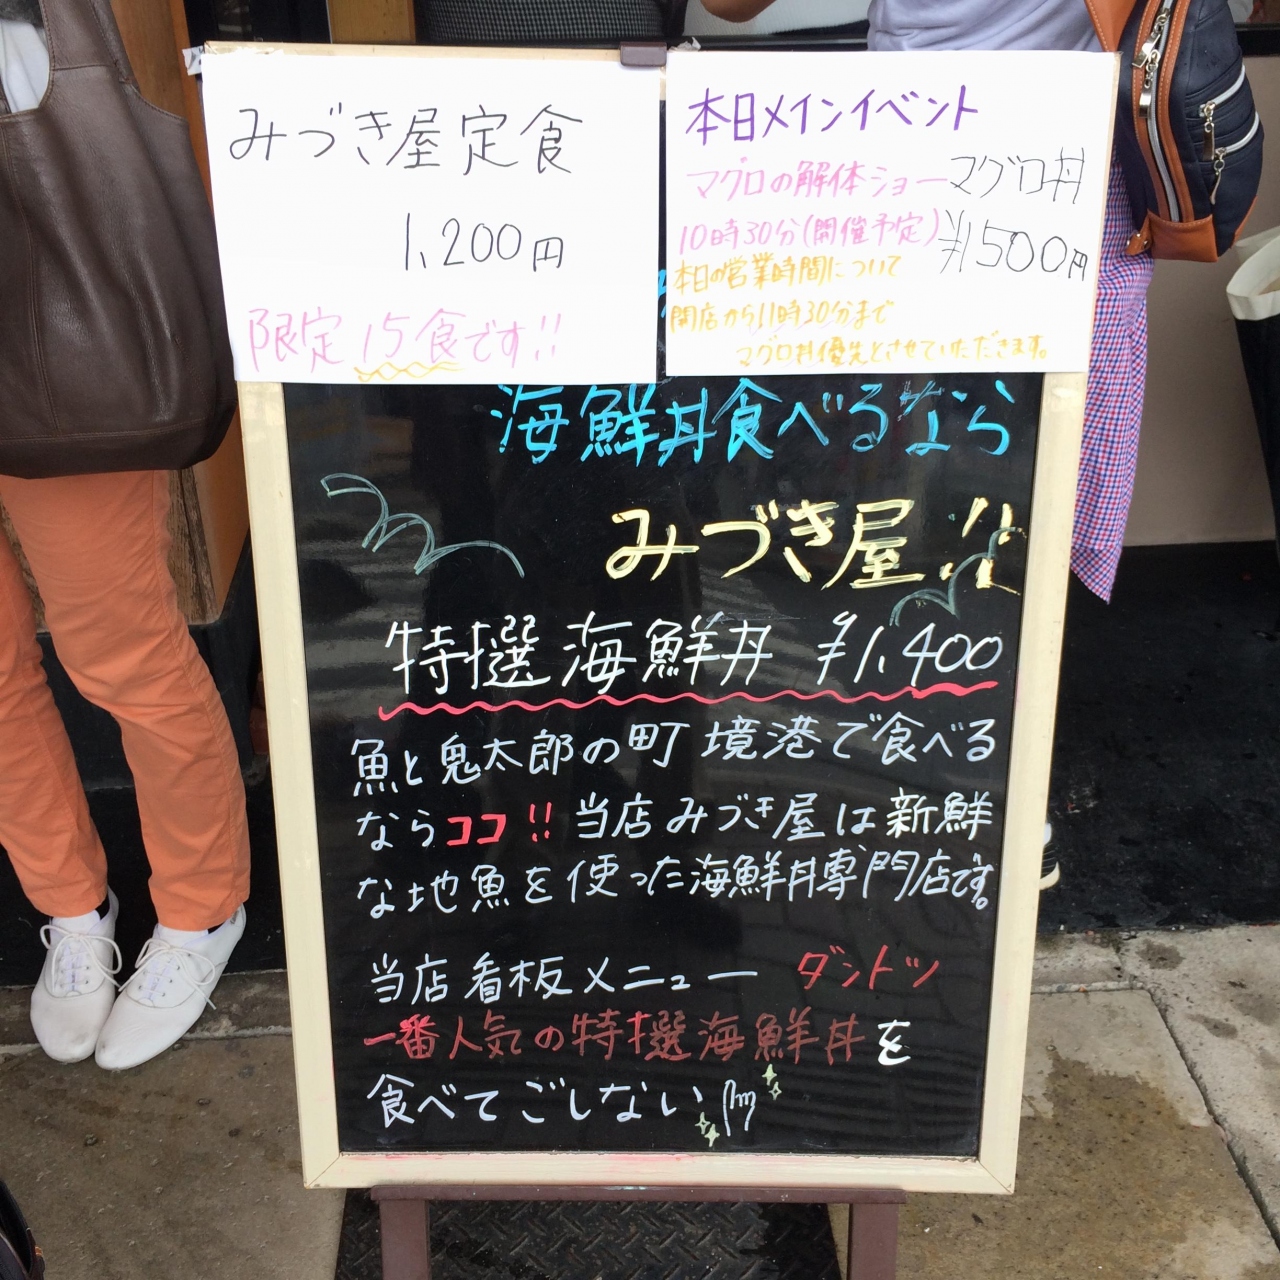 みづき屋定食
1,200円
限定15食です!!
本日メインイベント
マグロの解体ショー
10時30分(開催予定)
マグロ丼
¥1500円
本日の営業時間について
開店から11時30分まで
マグロ丼優先とさせていただきます。
海鮮丼食べるなら
みづき屋!!
特選海鮮丼 ¥1,400
魚と鬼太郎の町 境港で食べる
ならココ!! 当店みづき屋は新鮮
な地魚を使った海鮮丼専門店です。
当店看板メニュー ダントツ
一番人気の特選海鮮丼を
食べてごしない